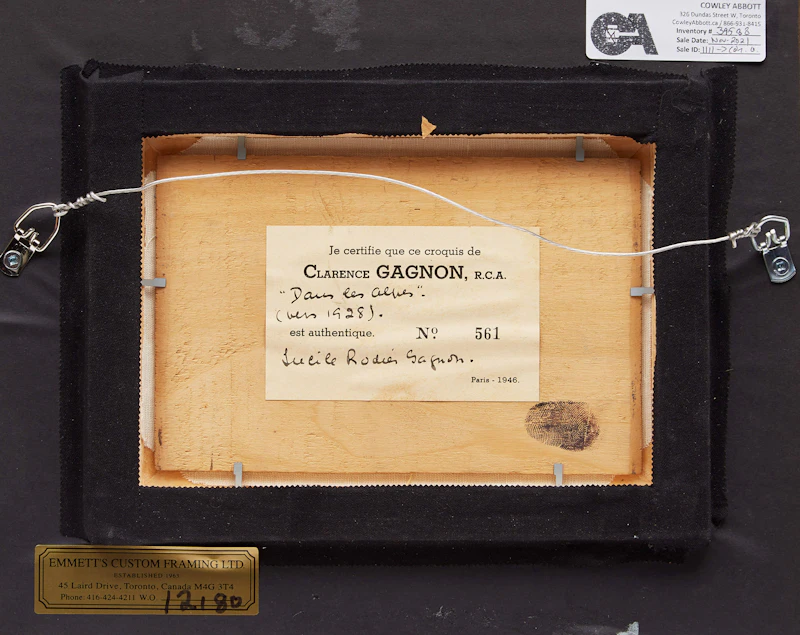 COWLEY ABBOTT
326 Dundas Street W, Toronto
CowleyAbbott.ca / 866-931-8415
Inventory #
Sale Date: Nov-2021
Sale ID:
CA
Je certifie que ce croquis de
CLARENCE GAGNON, R.C.A.
"Dans les Alpes".
(vers 1928).
est authentique. No. 561
Lucile Rodier Gagnon.
Paris - 1946.
EMMETT'S CUSTOM FRAMING LTD.
ESTABLISHED 1963
45 Laird Drive, Toronto, Canada M4G 3T4
Phone: 416-424-4211 W.O.